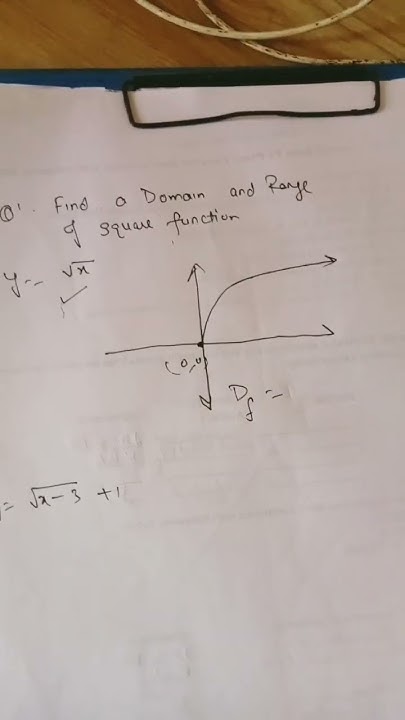 Q'. Find a Domain and Range
of square function
y = √x
(0,0)
D_f =
= √x-3 +1